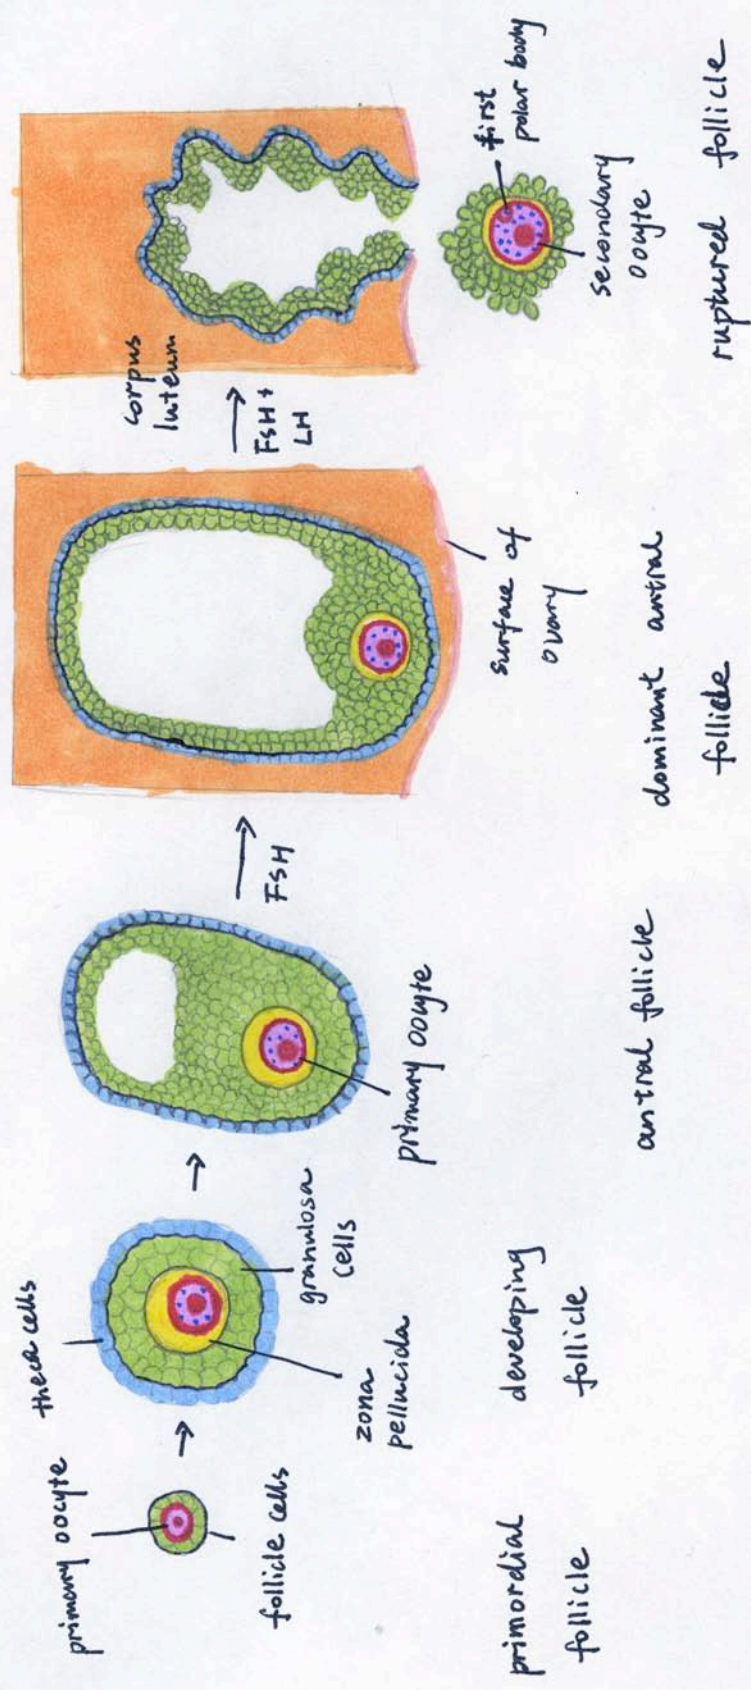 primary oocyte
follicle cells
primordial
follicle
theca cells
granulosa
cells
zona
pellucida
developing
follicle
primary oocyte
antral follicle
FSH
surface of
ovary
dominant antral
follicle
FSH +
LH
corpus
luteum
first
polar body
secondary
oocyte
ruptured follicle